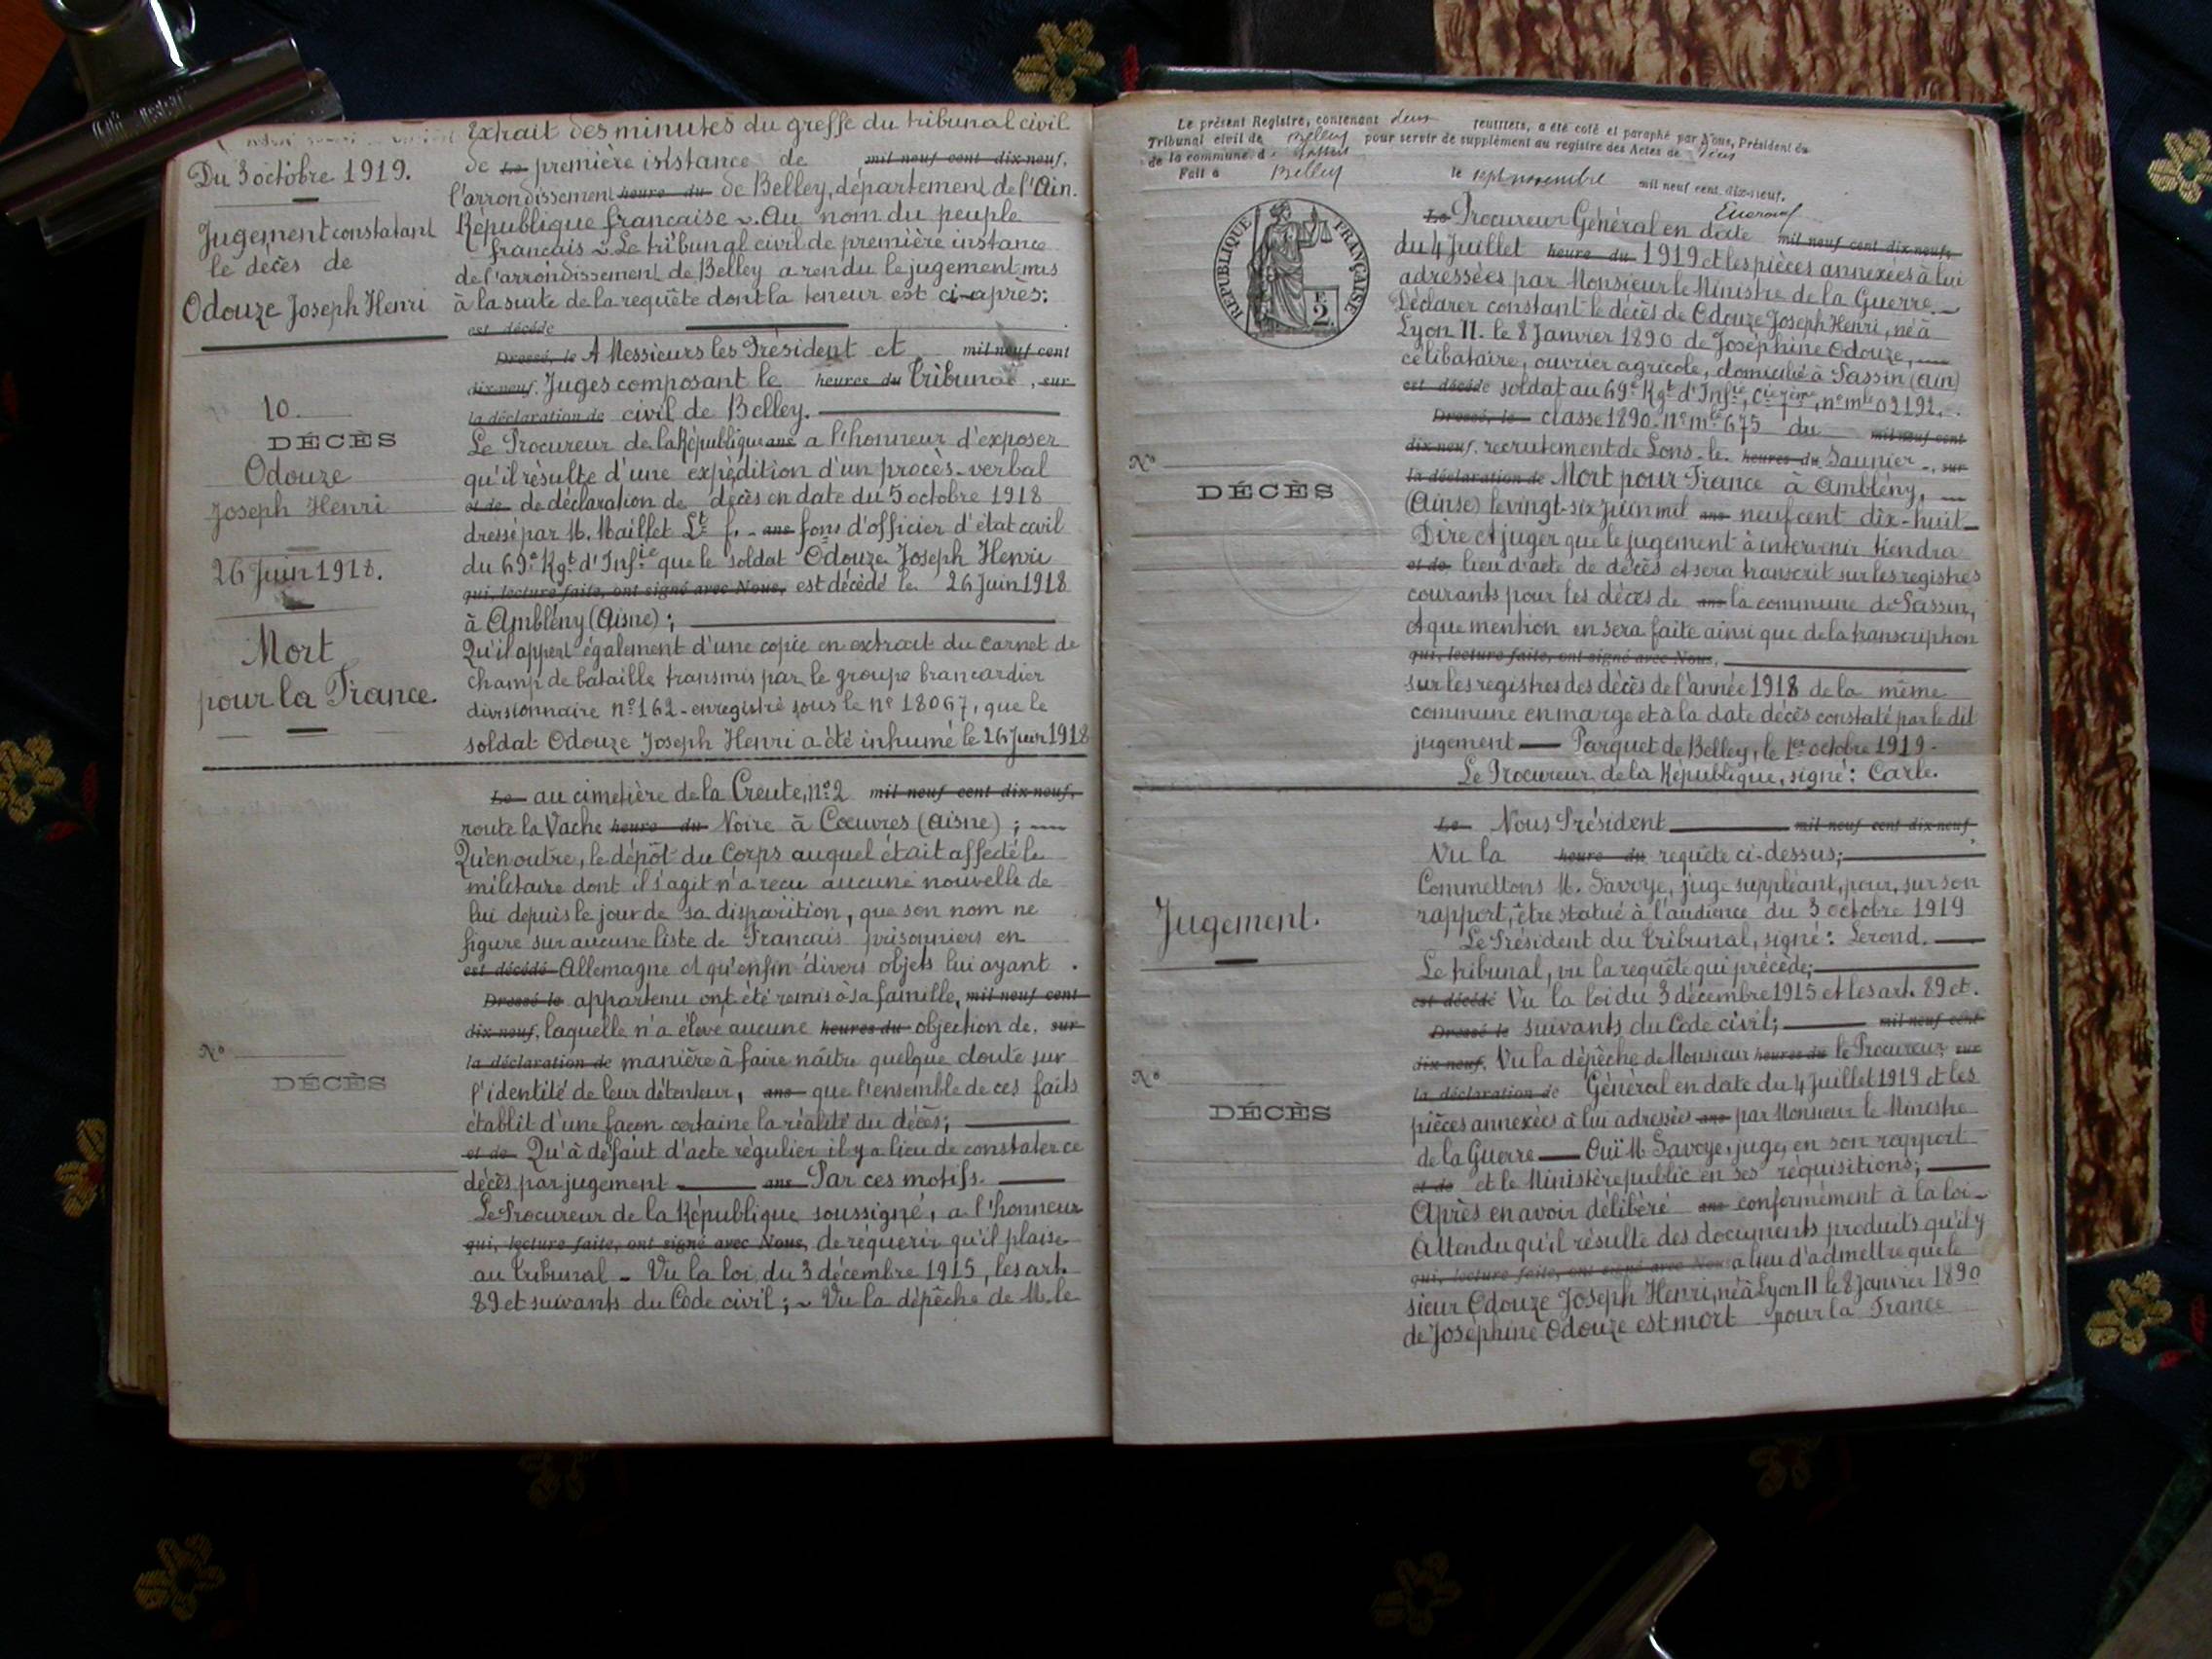 Extrait des minutes du greffe du tribunal civil
Du 3 octobre 1919.
de Le première instance de mil neuf cent dix-neuf,
l'arrondissement heure du de Belley, département de l'Ain.
Jugement constatant
le décès de
Odouze Joseph Henri
République française ~. Au nom du peuple
français ~. Le tribunal civil de première instance
de l'arrondissement de Belley a rendu le jugement mis
à la suite de la requête dont la teneur est ci-après:
est décédé
Dressé, le A Messieurs les Président et mil neuf cent
dix-neuf, Juges composant le heures du Tribunal, sur
la déclaration de civil de Belley.
10.
DÉCÈS
Odouze
Joseph Henri
26 Juin 1918.
Mort
pour la France.
Le Procureur de la République ans a l'honneur d'exposer
qu'il résulte d'une expédition d'un procès-verbal
et de de déclaration de décès en date du 5 octobre 1918
dressé par M. Maillet Lt f. - ans fons d'officier d'état civil
du 69e Rgt d'Infie que le soldat Odouze Joseph Henri
qui, lecture faite, ont signé avec Nous, est décédé le 26 Juin 1918
à Ambleny (Aisne);
Qu'il appert également d'une copie en extrait du carnet de
champ de bataille transmis par le groupe brancardier
divisionnaire n° 162 - enregistré sous le n° 18067, que le
soldat Odouze Joseph Henri a été inhumé le 26 Juin 1918
Le au cimetière de la Creute, n° 2 mil neuf cent dix-neuf,
route la Vache heure du Noire à Coeuvres (Aisne);
Qu'en outre, le dépôt du Corps auquel était affecté le
militaire dont il s'agit n'a reçu aucune nouvelle de
lui depuis le jour de sa disparition, que son nom ne
figure sur aucune liste de Français prisonniers en
est décédé Allemagne et qu'enfin divers objets lui ayant
Dressé le appartenu ont été remis à sa famille, mil neuf cent
dix-neuf, laquelle n'a élevé aucune heures du objection de, sur
la déclaration de manière à faire naître quelque doute sur
N°
DÉCÈS
l'identité de leur détenteur, ans que l'ensemble de ces faits
établit d'une façon certaine la réalité du décès;
et de Qu'à défaut d'acte régulier il y a lieu de constater ce
décès par jugement ans Par ces motifs.
Le Procureur de la République soussigné, a l'honneur
qui, lecture faite, ont signé avec Nous, de requérir qu'il plaise
au Tribunal - Vu la loi du 3 décembre 1915, les art.
89 et suivants du Code civil; ~ Vu la dépêche de M. le
Le présent Registre, contenant deux feuillets, a été coté et paraphé par Nous, Président du
Tribunal civil de Belley pour servir de supplément au registre des Actes de Décès
de la commune d
Fait à Belley le sept novembre mil neuf cent dix-neuf.
RÉPUBLIQUE FRANÇAISE
2
Le Procureur Général en date mil neuf cent dix-neuf,
du 4 Juillet heure du 1919 et les pièces annexées à lui
adressées par Monsieur le Ministre de la Guerre. ~
Déclarer constant le décès de Odouze Joseph Henri, né à
Lyon II. le 8 Janvier 1890 de Joséphine Odouze,
célibataire, ouvrier agricole, domicilié à Sassin (Ain)
est décédé soldat au 69e Rgt d'Infie, Cie 7ème, n° mle 02192.
Dressé, le classe 1890. n° mle 675 du mil neuf cent
dix-neuf, recrutement de Lons-le- heures du Saunier -, sur
la déclaration de Mort pour France à Ambleny,
N°
DÉCÈS
(Ainse) le vingt-six Juin mil ans neuf cent dix-huit
Dire et juger que le jugement à intervenir tiendra
et de lieu d'acte de décès et sera transcrit sur les registres
courants pour les décès de ans la commune de Sassin,
et que mention en sera faite ainsi que de la transcription
qui, lecture faite, ont signé avec Nous,
sur les registres des décès de l'année 1918 de la même
commune en marge et à la date décès constaté par le dit
jugement — Parquet de Belley, le 1er octobre 1919 -
Le Procureur de la République, signé: Carle.
Le Nous Président mil neuf cent dix-neuf
Vu la heure du requête ci-dessus;
Commettons M. Savoye, juge suppléant, pour, sur son
rapport, être statué à l'audience du 3 octobre 1919
Jugement.
Le Président du Tribunal, signé: Lerond.
Le tribunal, vu la requête qui précède;
est décédé Vu la loi du 3 décembre 1915 et les art. 89 et.
Dressé le suivants du Code civil; mil neuf cent
dix-neuf, Vu la dépêche de Monsieur heures du le Procureur, sur
la déclaration de Général en date du 4 Juillet 1919 et les
N°
DÉCÈS
pièces annexées à lui adressées ans par Monsieur le Ministre
de la Guerre — Ouï M. Savoye, juge, en son rapport
et de et le Ministère public en ses réquisitions;
Après en avoir délibéré ans conformément à la loi -
Attendu qu'il résulte des documents produits qu'il y
qui, lecture faite, ont signé avec Nous a lieu d'admettre que le
sieur Odouze Joseph Henri, né à Lyon II le 8 Janvier 1890
de Joséphine Odouze est mort pour la France